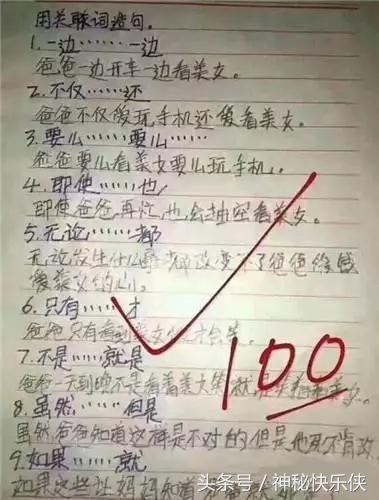 用关联词造句。
1.一边……一边
爸爸一边开车一边看美女。
2.不仅……还
爸爸不仅爱玩手机还爱看美女。
3.要么……要么……
爸爸要么看美女要么玩手机。
4.即使……也
即使爸爸再忙,也会抽空看美女。
5.无论……都
无论发生什么都改变不了爸爸
爱美女的心。
6.只有……才
爸爸只有看到美女才会笑。
7.不是……就是
爸爸一天到晚不是看着美女笑就是
8.虽然……但是
虽然爸爸知道这样是不对的,但是他死不肯改
9.如果……就
如果这些让妈妈知道
100
头条号 / 神秘快乐侠